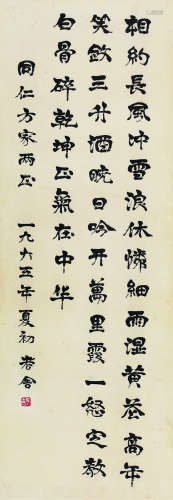 相約長風冲雪浪休憐細雨湿黄花高年
笑飲三升酒晓日吟开萬里霞一怒定教
白骨碎乾坤正氣在中华
同仁方家两正 一九六五年夏初 老舍